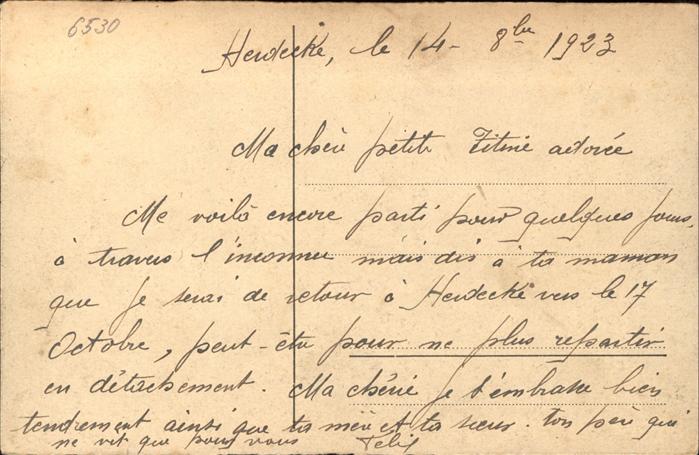 6530
Herdecke, le 14 - 8bre 1923
Ma chère petite Titine adorée
Me voilà encore parti pour quelques jours,
à travers l'inconnu mais dis à ta maman
que je serai de retour à Herdecke vers le 17
Octobre, peut-être pour ne plus repartir
en détachement. Ma chérie je t'embrasse bien
tendrement ainsi que ta mère et ta sœur. ton père qui
ne vit que pour vous Felix